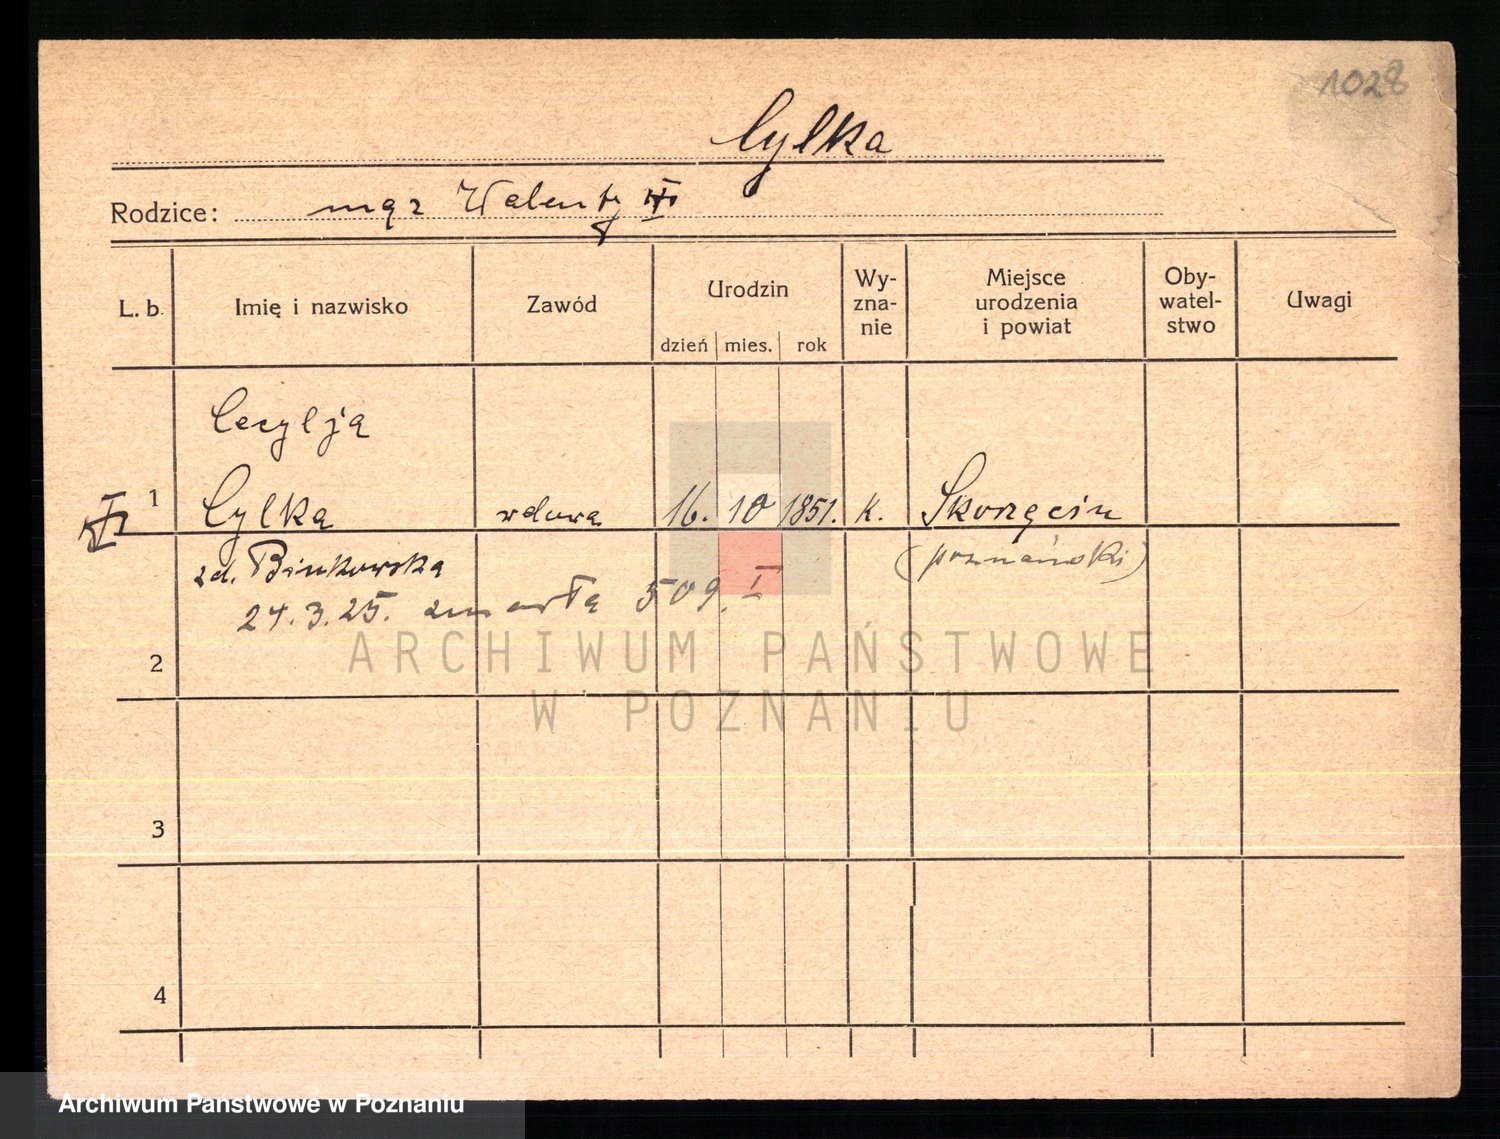 1028
Cylka
Rodzice: mąż Walenty
L. b. Imię i nazwisko Zawód Urodzin Wy-zna-nie Miejsce urodzenia i powiat Oby-watel-stwo Uwagi
dzień mies. rok
Cecylja
1 Cylka wdowa 16. 10 1851. k. Skorzęcin
zd. Binkowska (poznański)
24.3.25. zmarła 509. I
2
ARCHIWUM PAŃSTWOWE
W POZNANIU
3
4
Archiwum Państwowe w Poznaniu